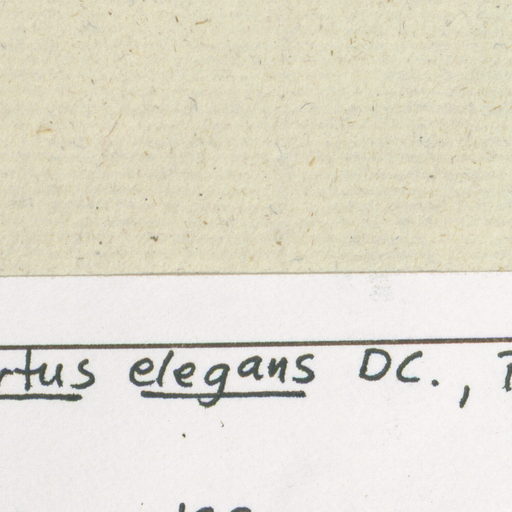 rtus elegans DC.,